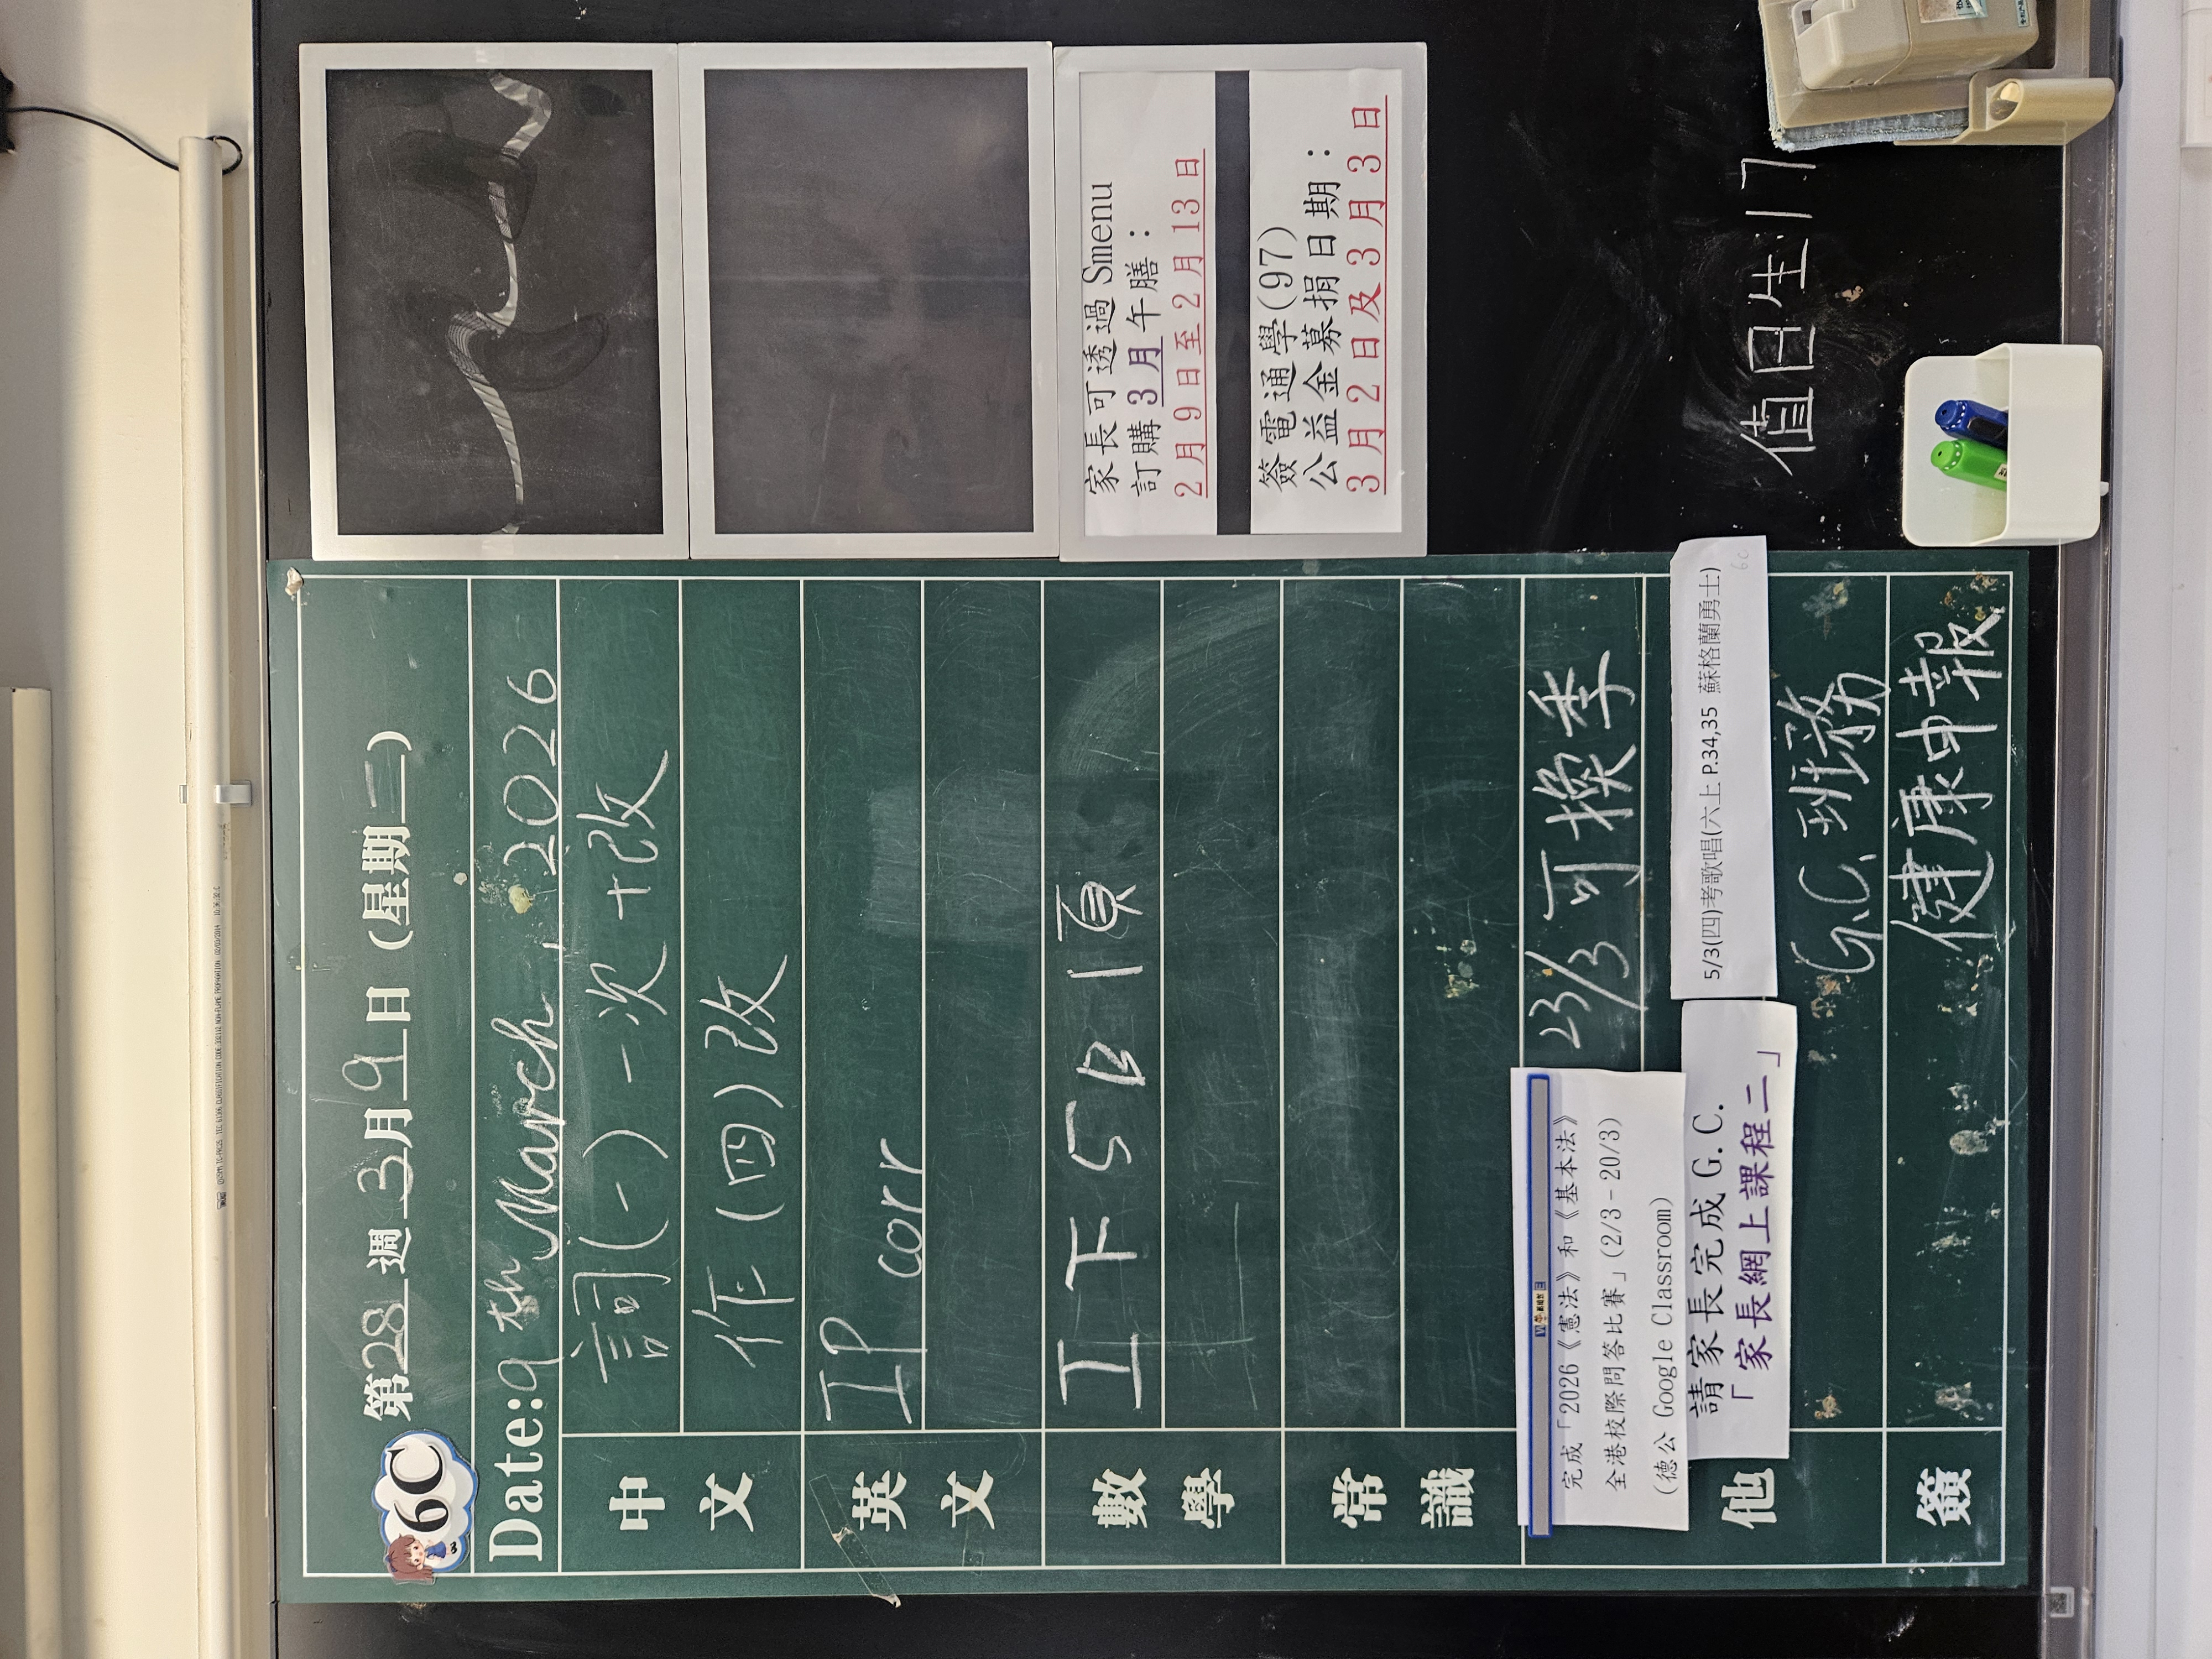 6C
第28週3月9日(星期二)
Date:9th March, 2026
中文
詞(一)一次+改
作(四)改
英文
IP
corr
數學
工下5B1頁
常識
完成「2026《憲法》和《基本法》
全港校際問答比賽」(2/3-20/3)
(德公 Google Classroom)
23/3可換季
他
請家長完成G.C.
「家長網上課程二」
5/3(四)考歌唱(六上 P.34,35 蘇格蘭勇士)
6C
G.C.班務
簽
健康申報
家長可透過 Smenu
訂購3月午膳:
2月9日至2月13日
簽電通學(97)
公益金募捐日期:
3月2日及3月3日
值日生:17